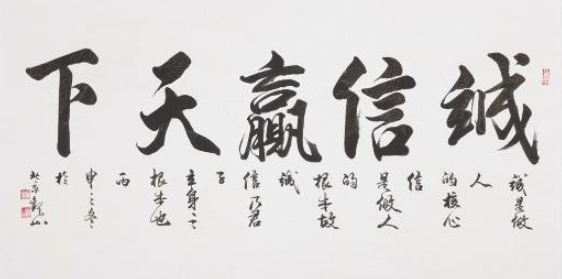 诚信赢天下
诚是做
人
的核心
信
是做人
的
根本故
诚
信乃君
子
立身之
根本也
丙
申之冬
於
北京